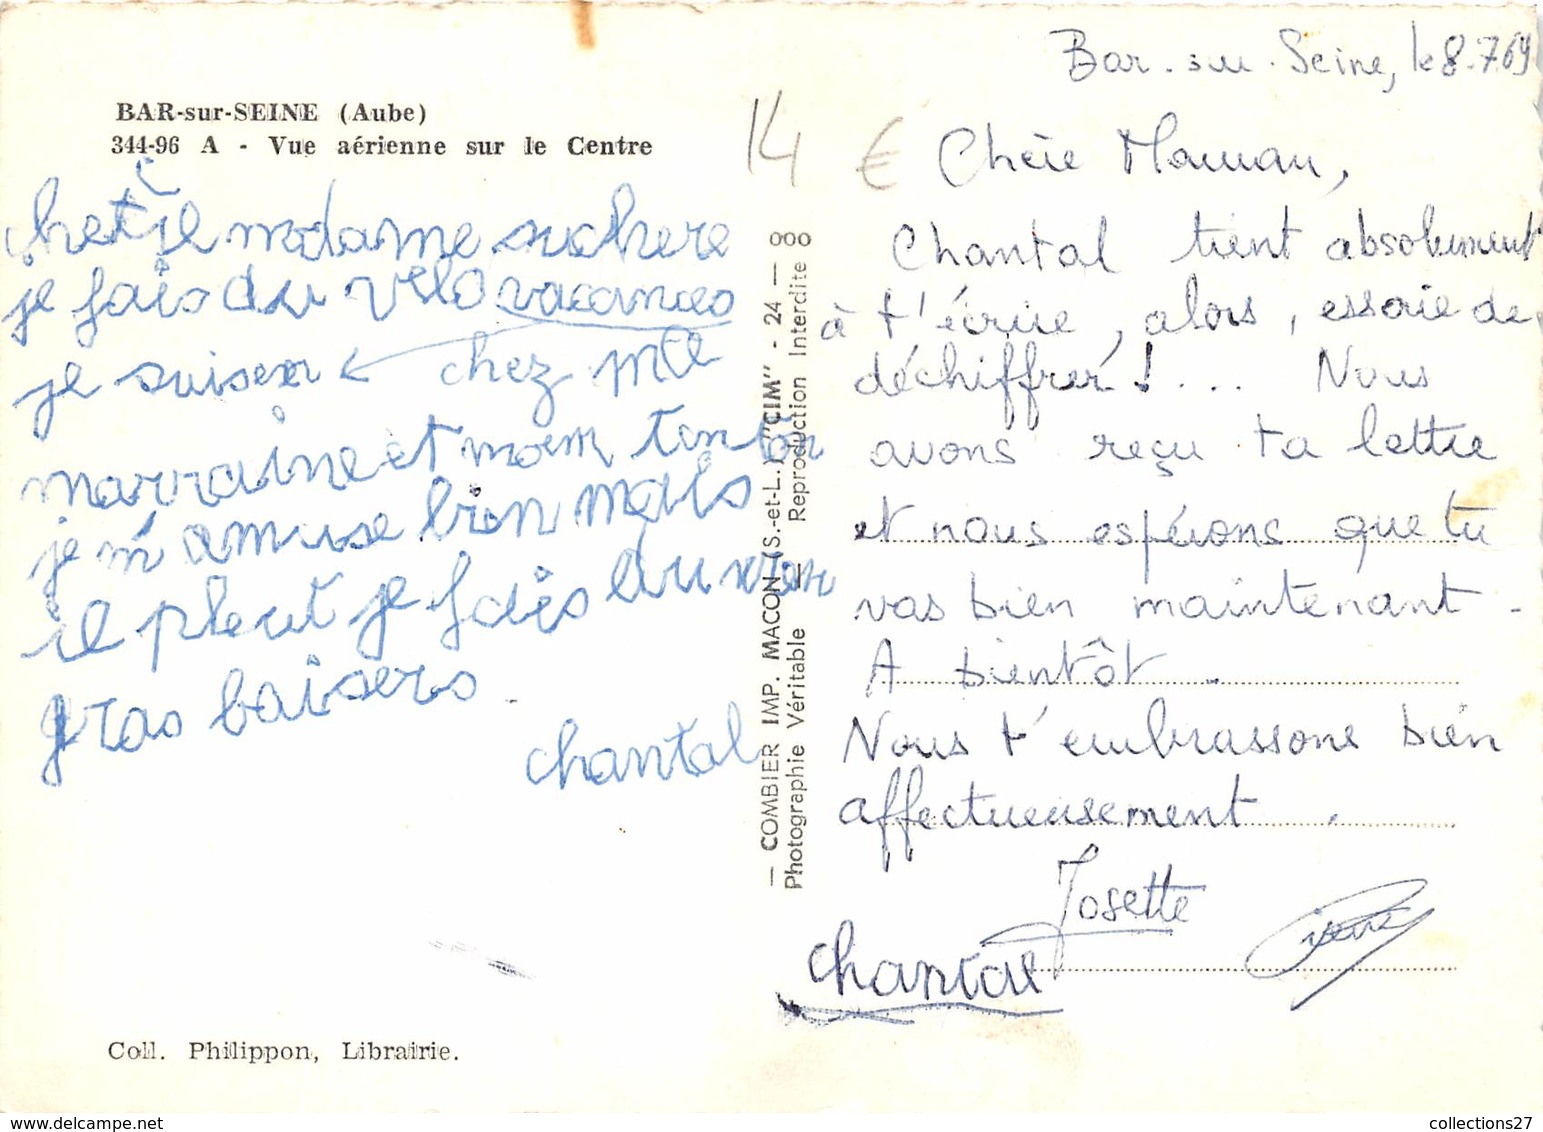 BAR-sur-SEINE (Aube)
344-96 A - Vue aérienne sur le Centre
je fais du vélo vacances
je suis en ← chez
marraine et tonton
je m'amuse bien mais
il pleut je fais du
gros baisers
chantal
14 €
— COMBIER IMP. MACON (S.-et-L.) "CIM" - 24 — 000
Photographie Véritable — Reproduction Interdite
Bar-sur-Seine, le 8.7.69
Chère Maman,
Chantal tient absolument
à t'écrire, alors, essaie de
déchiffrer !... Nous
avons reçu ta lettre
et nous espérons que tu
vas bien maintenant.
A bientôt.
Nous t'embrassons bien
affectueusement.
Josette
Chantal
Coll. Philippon, Librairie.
collections27